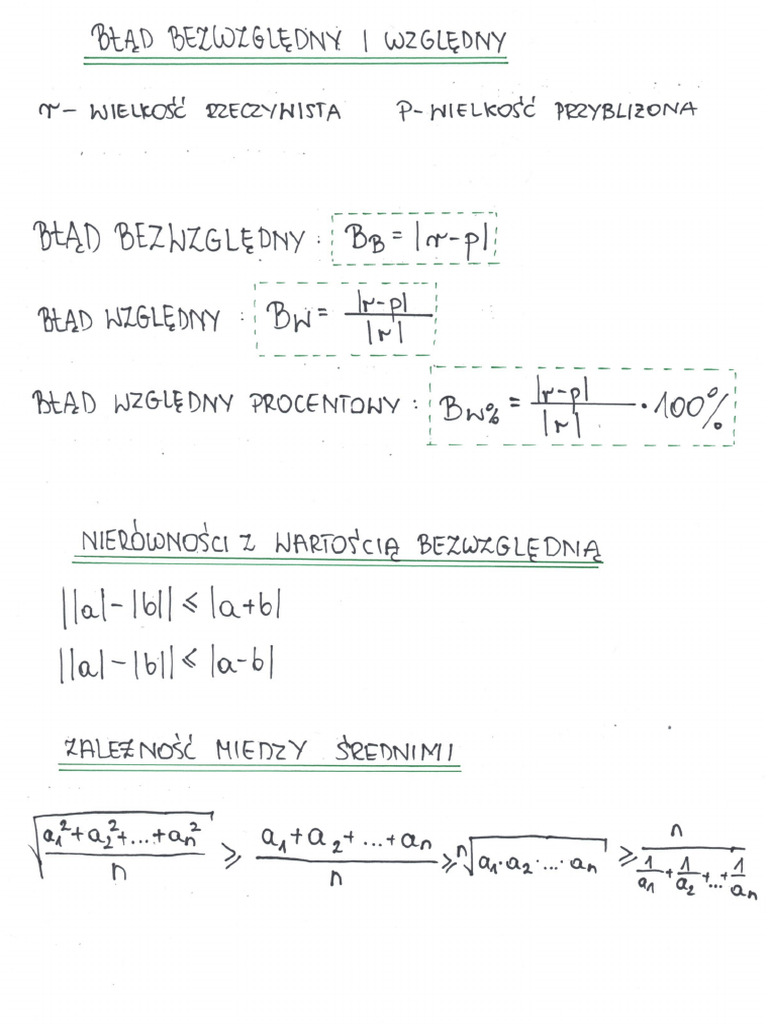 BŁĄD BEZWZGLĘDNY I WZGLĘDNY
r – WIELKOŚĆ RZECZYWISTA P – WIELKOŚĆ PRZYBLIŻONA
BŁĄD BEZWZGLĘDNY : B_B = |r-p|
BŁĄD WZGLĘDNY : B_W = |r-p| / |r|
BŁĄD WZGLĘDNY PROCENTOWY : B_W% = |r-p| / |r| · 100%
NIERÓWNOŚCI Z WARTOŚCIĄ BEZWZGLĘDNĄ
||a|-|b|| ≤ |a+b|
||a|-|b|| ≤ |a-b|
ZALEŻNOŚĆ MIEDZY ŚREDNIMI
√((a₁²+a₂²+...+aₙ²) / n) ≥ (a₁+a₂+...+aₙ) / n ≥ ⁿ√(a₁·a₂·...·aₙ) ≥ n / (1/a₁+1/a₂+...+1/aₙ)